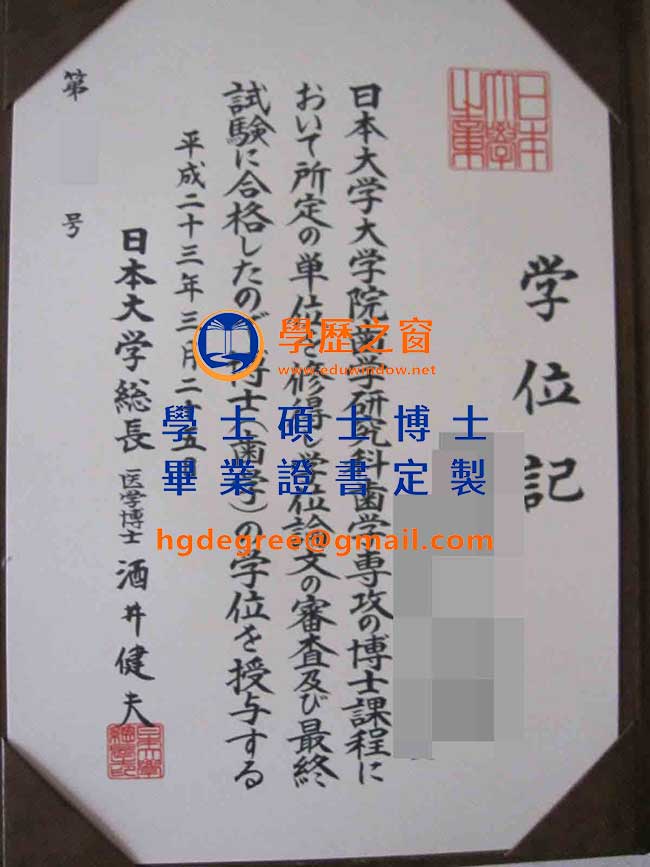 学位記
日本大学大学院歯学研究科歯学専攻の博士課程に
おいて所定の単位を修得し学位論文の審査及び最終
試験に合格したので博士(歯学)の学位を授与する
平成二十三年三月二十五日
日本大学総長 医学博士 酒井健夫
第 号
日本
大學
之章
學歷之窗
www.eduwindow.net
學士碩士博士
畢業證書定製
hgdegree@gmail.com